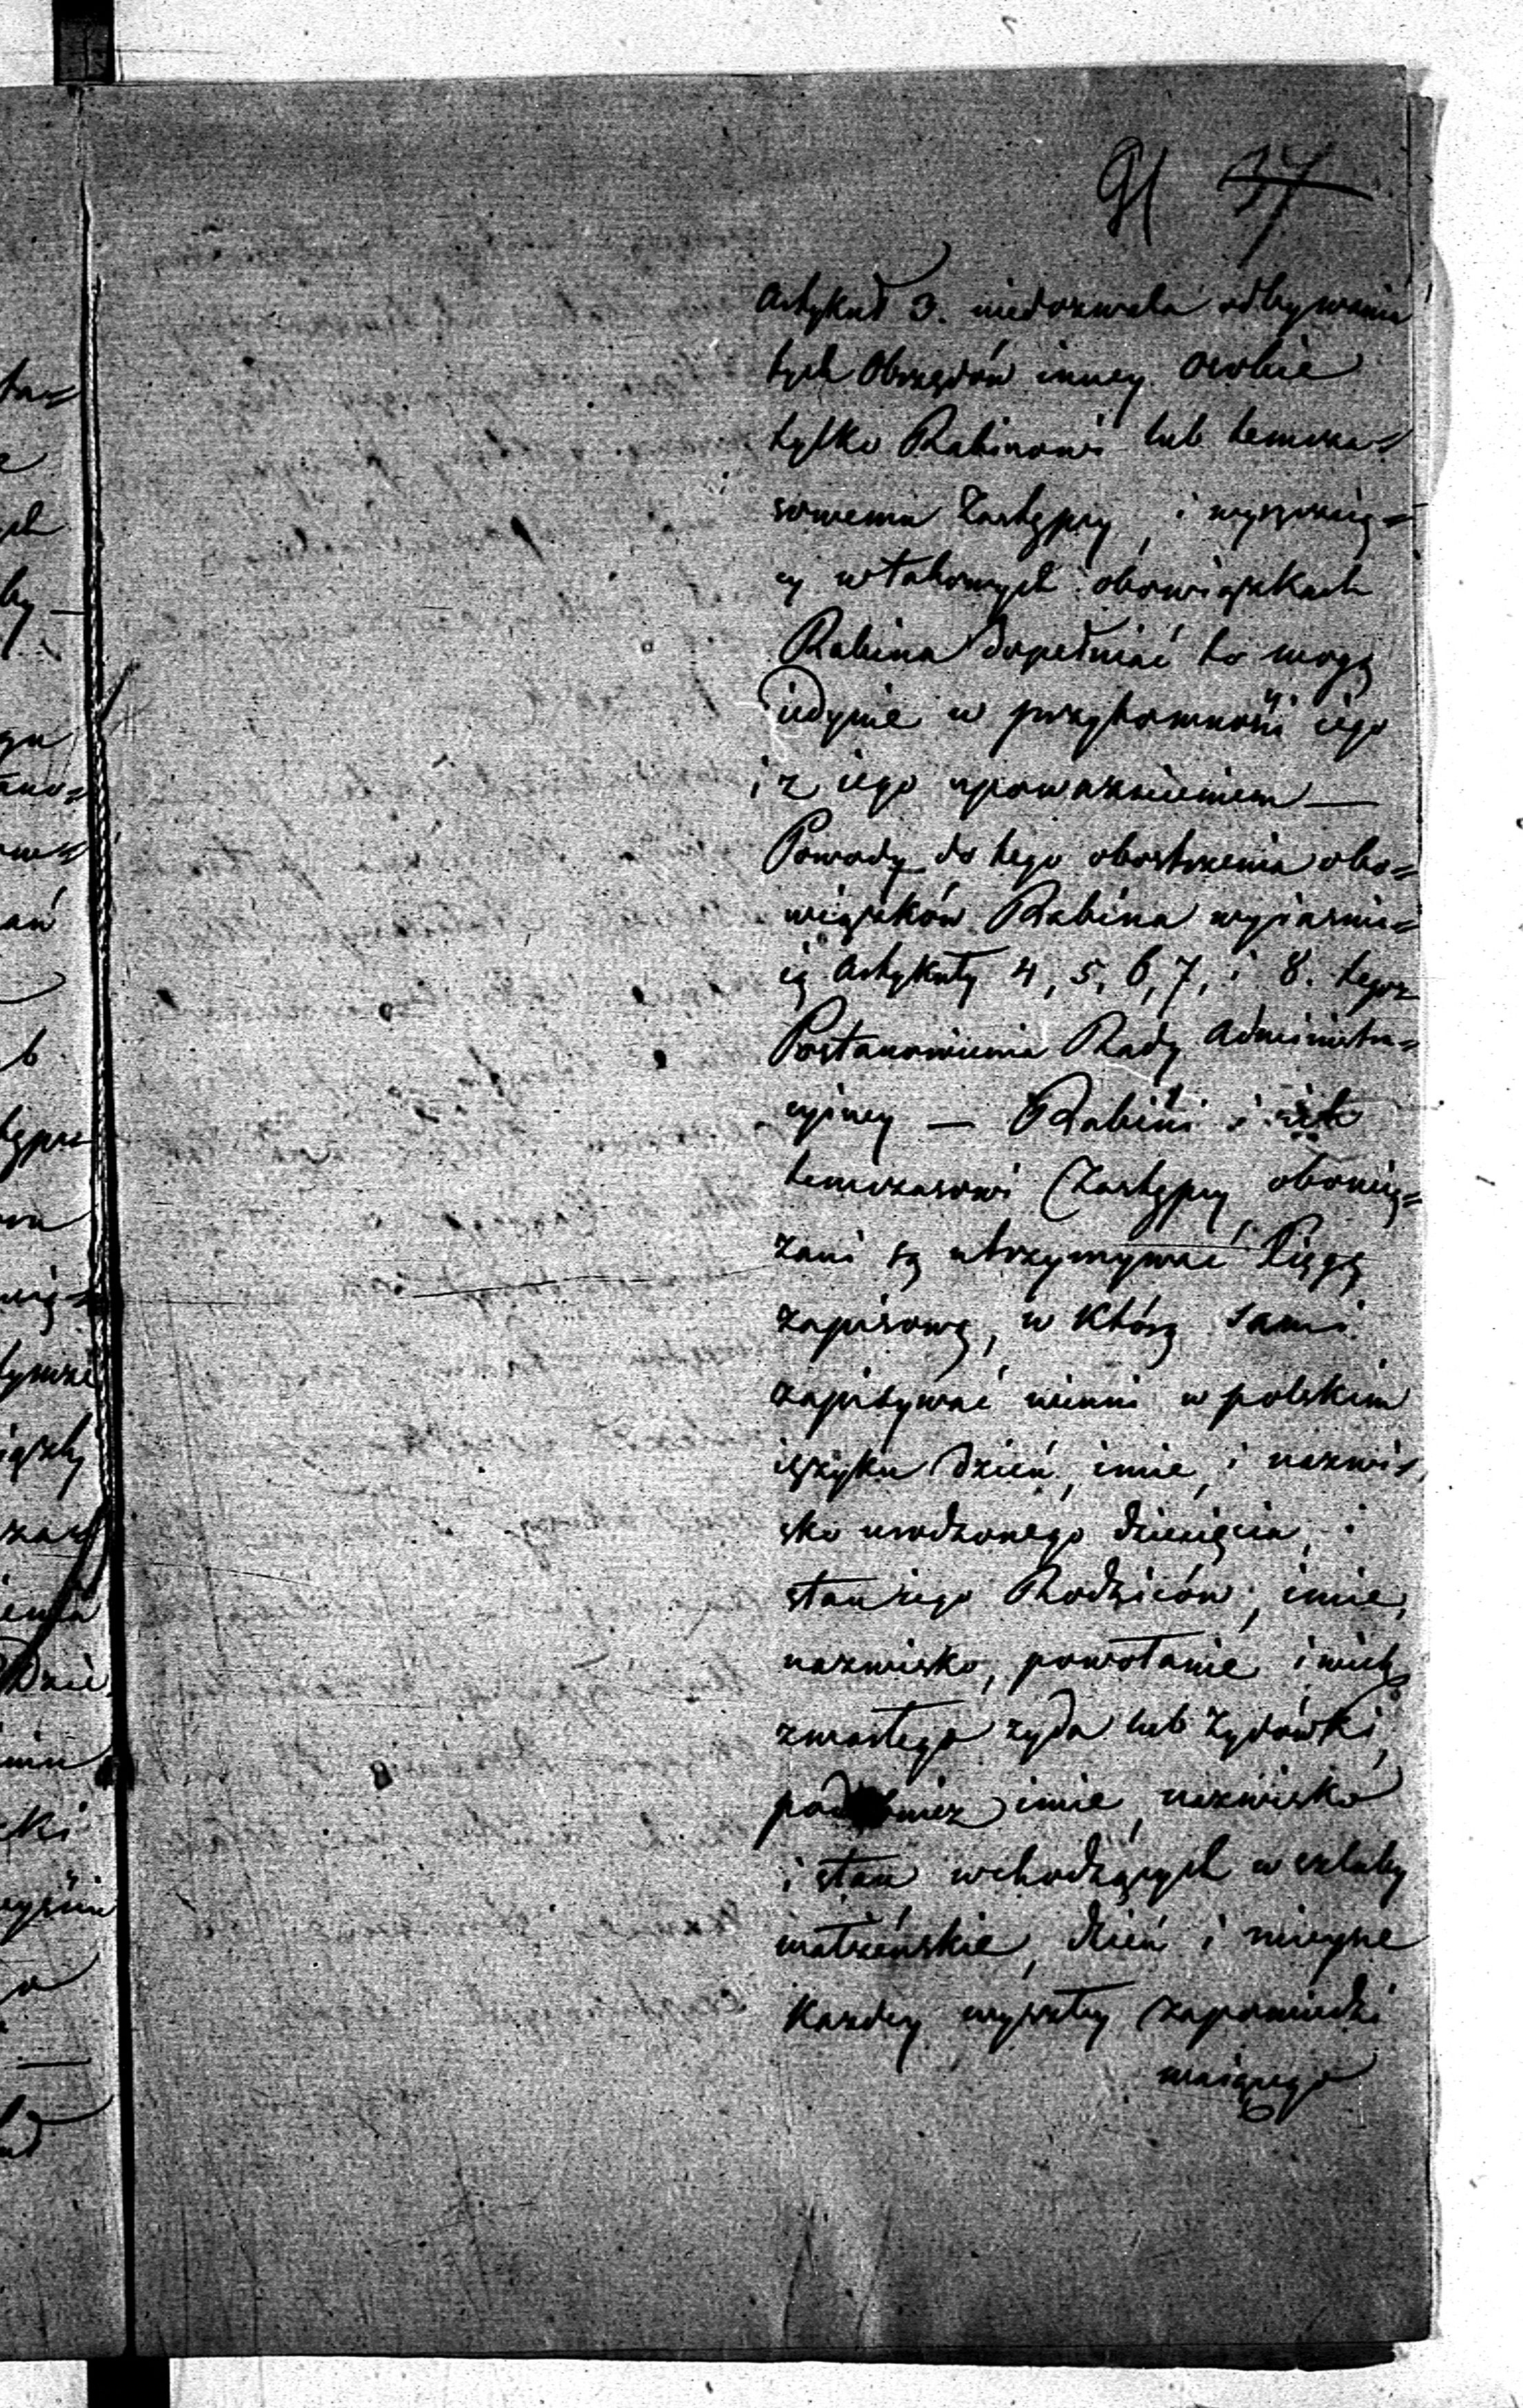 91 37
Artykuł 3. niedozwala odbywania
tych Obrzędów inney Osobie
tylko Rabinowi lub temcza=
sowemu Zastępcy, i wyszcię=
cy w takowych obowiązkach
Rabina dopełniać to mogą
iedynie w przytomności iego
i z iego upoważnieniem —
Powody do tego obostrzenia obo=
wiązków Rabina wyiaśnia=
ią Artykuły 4, 5, 6, 7, i 8. tegoż
Postanowienia Rady Administra=
cyiney — Rabini i ich
temczasowi Zastępcy obowią=
zani są utrzymywać Xięgę
zapisową, w którą sami
zapisywać winni w polskim
ięzyku dzień, imie, i nazwi=
sko urodzonego dziecięcia, i
stan iego Rodziców; imie,
nazwisko, powołanie i wiek
zmarłego żyda lub żydówki,
imie, nazwisko
i stan wchodzących w szluby
małżeńskie, dzień i mieysce
każdey wyszłey zapowiedzi
maiącego